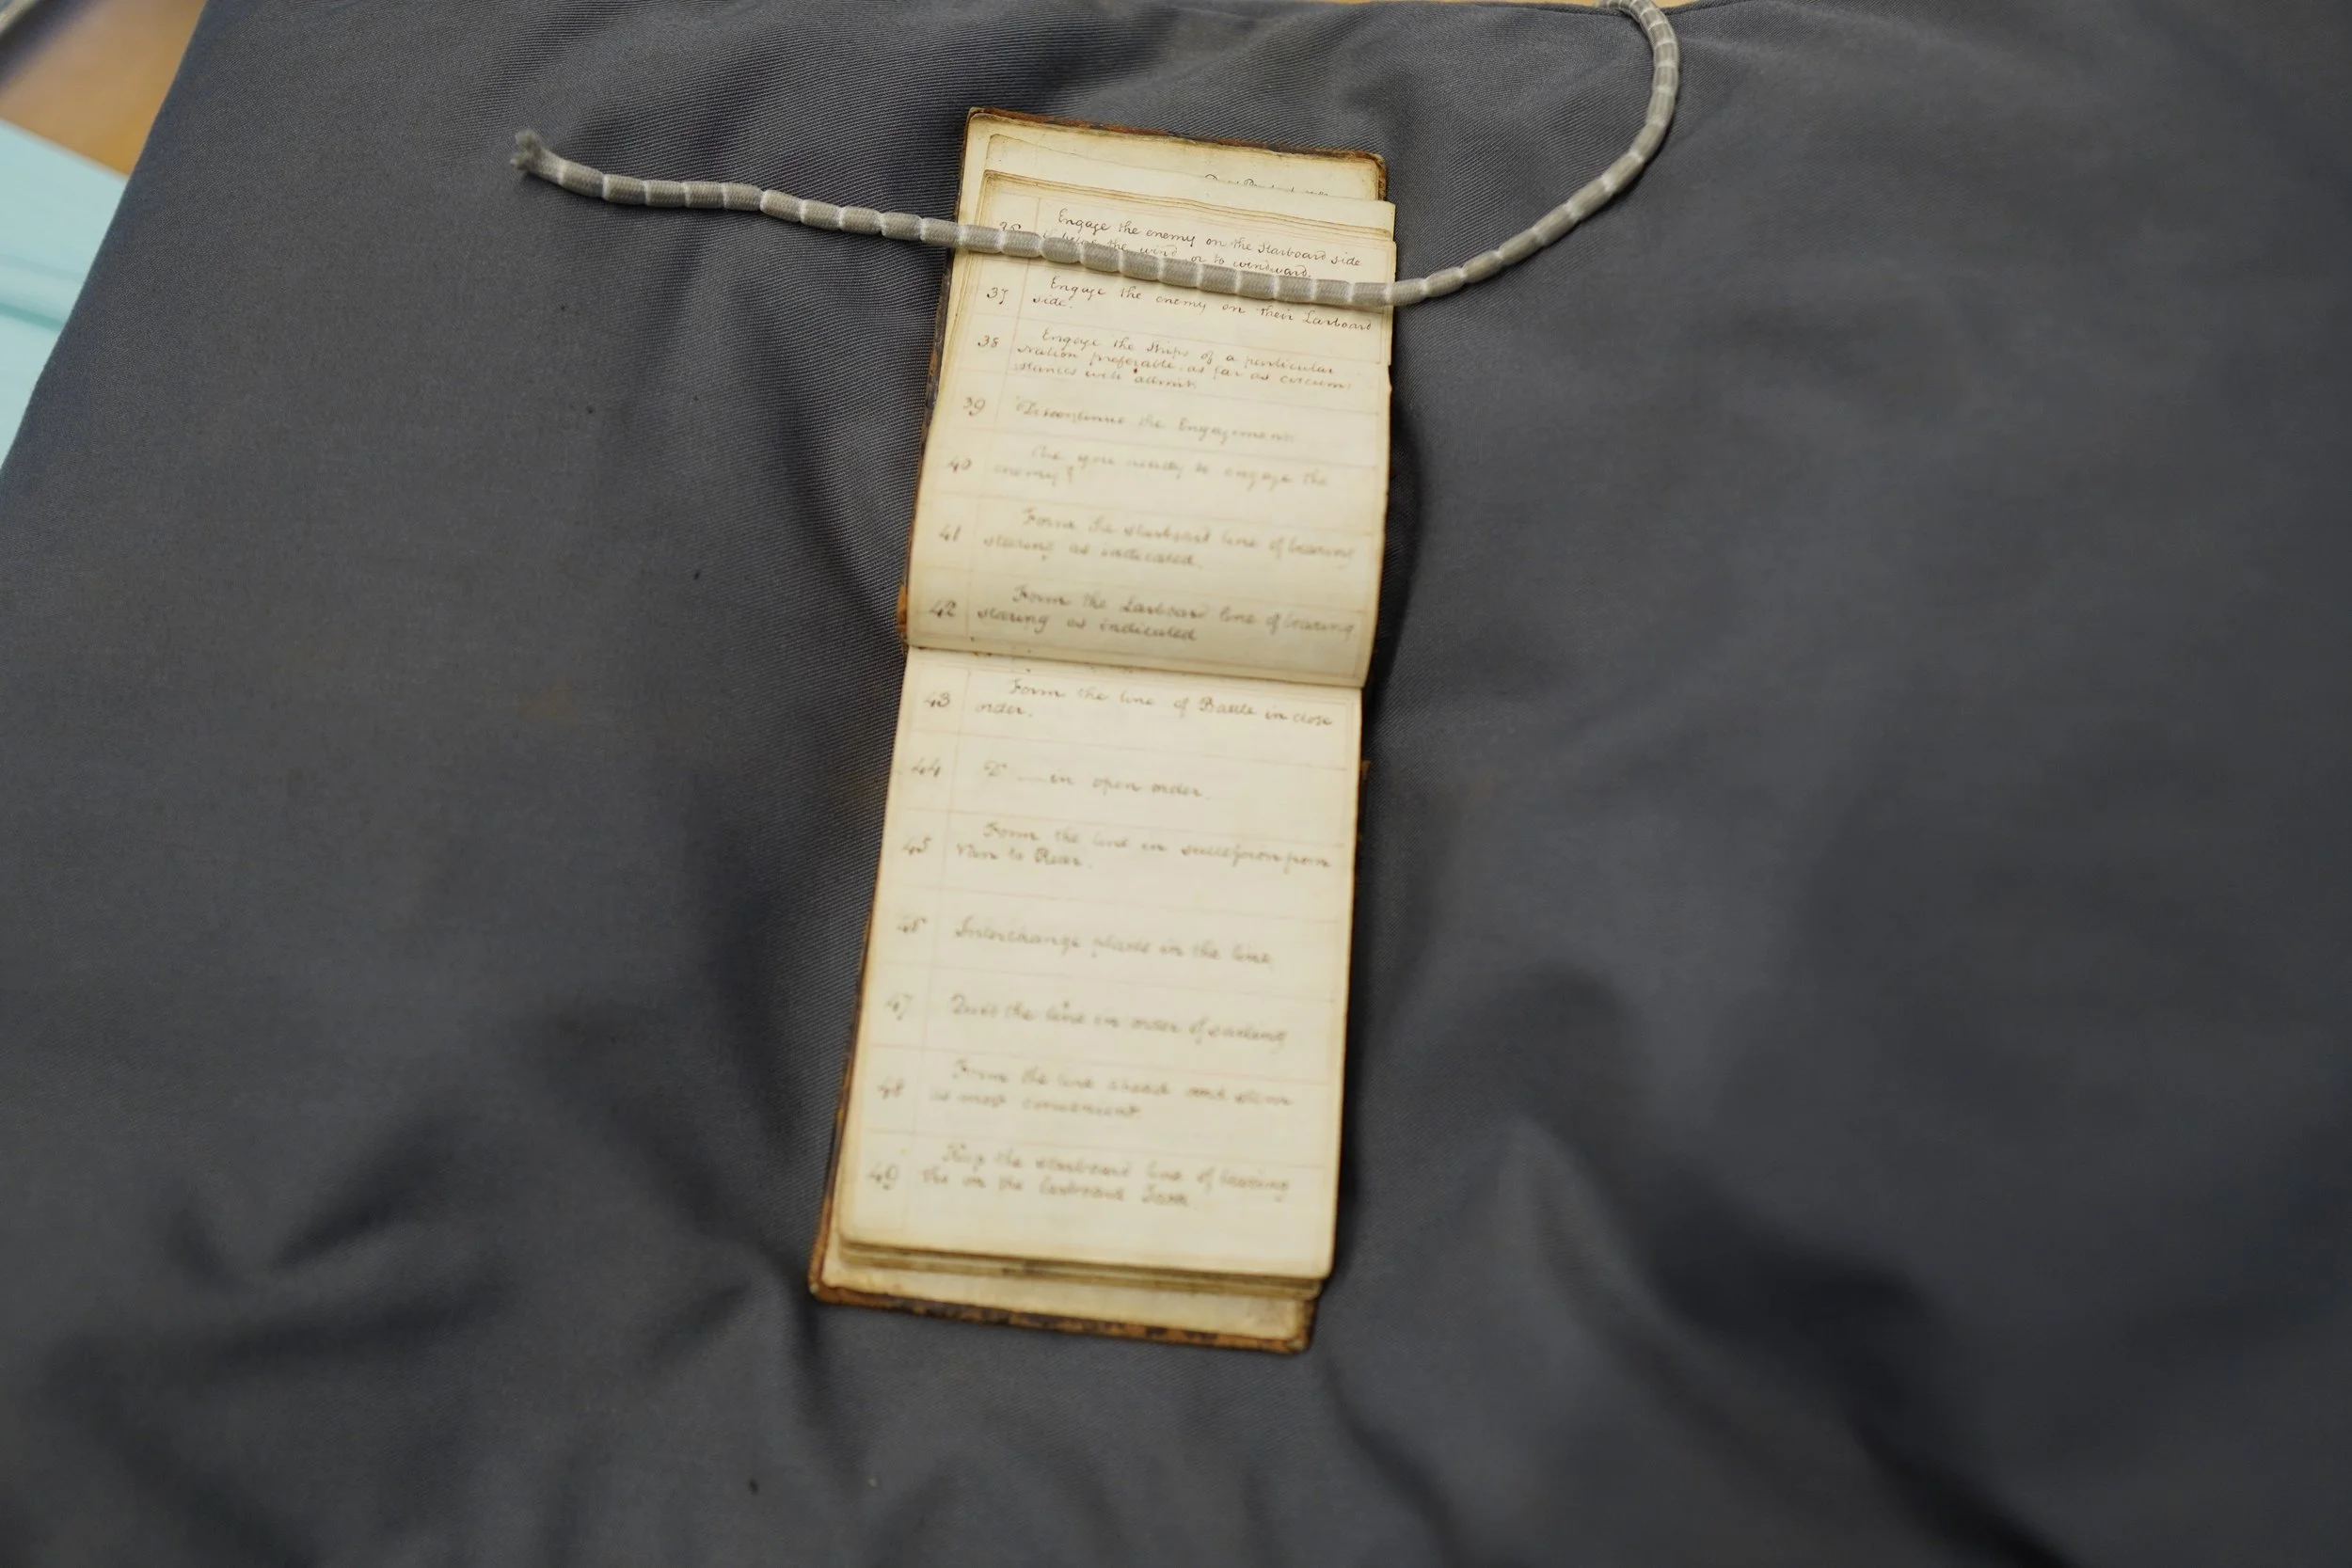 36 Engage the enemy on the Starboard side
the wind or to windward.
37 Engage the enemy on their Larboard
side.
38 Engage the Ships of a perticular
Nation preferable, as far as circum:
stances will admit.
39 Discontinue the Engagement
40 Are you ready to engage the
enemy?
41 Form the Starboard line of bearing
stearing as indicated.
42 Form the Larboard line of bearing
stearing as indicated
43 Form the line of Battle in close
order.
44 Do in open order.
45 Form the line in succession from
Van to Rear.
46 Interchange places in the line
47 the line in order of sailing
48 Form the line ahead and stern
as most convenient.
49 Keep the starboard line of bearing
tho on the larboard Tack